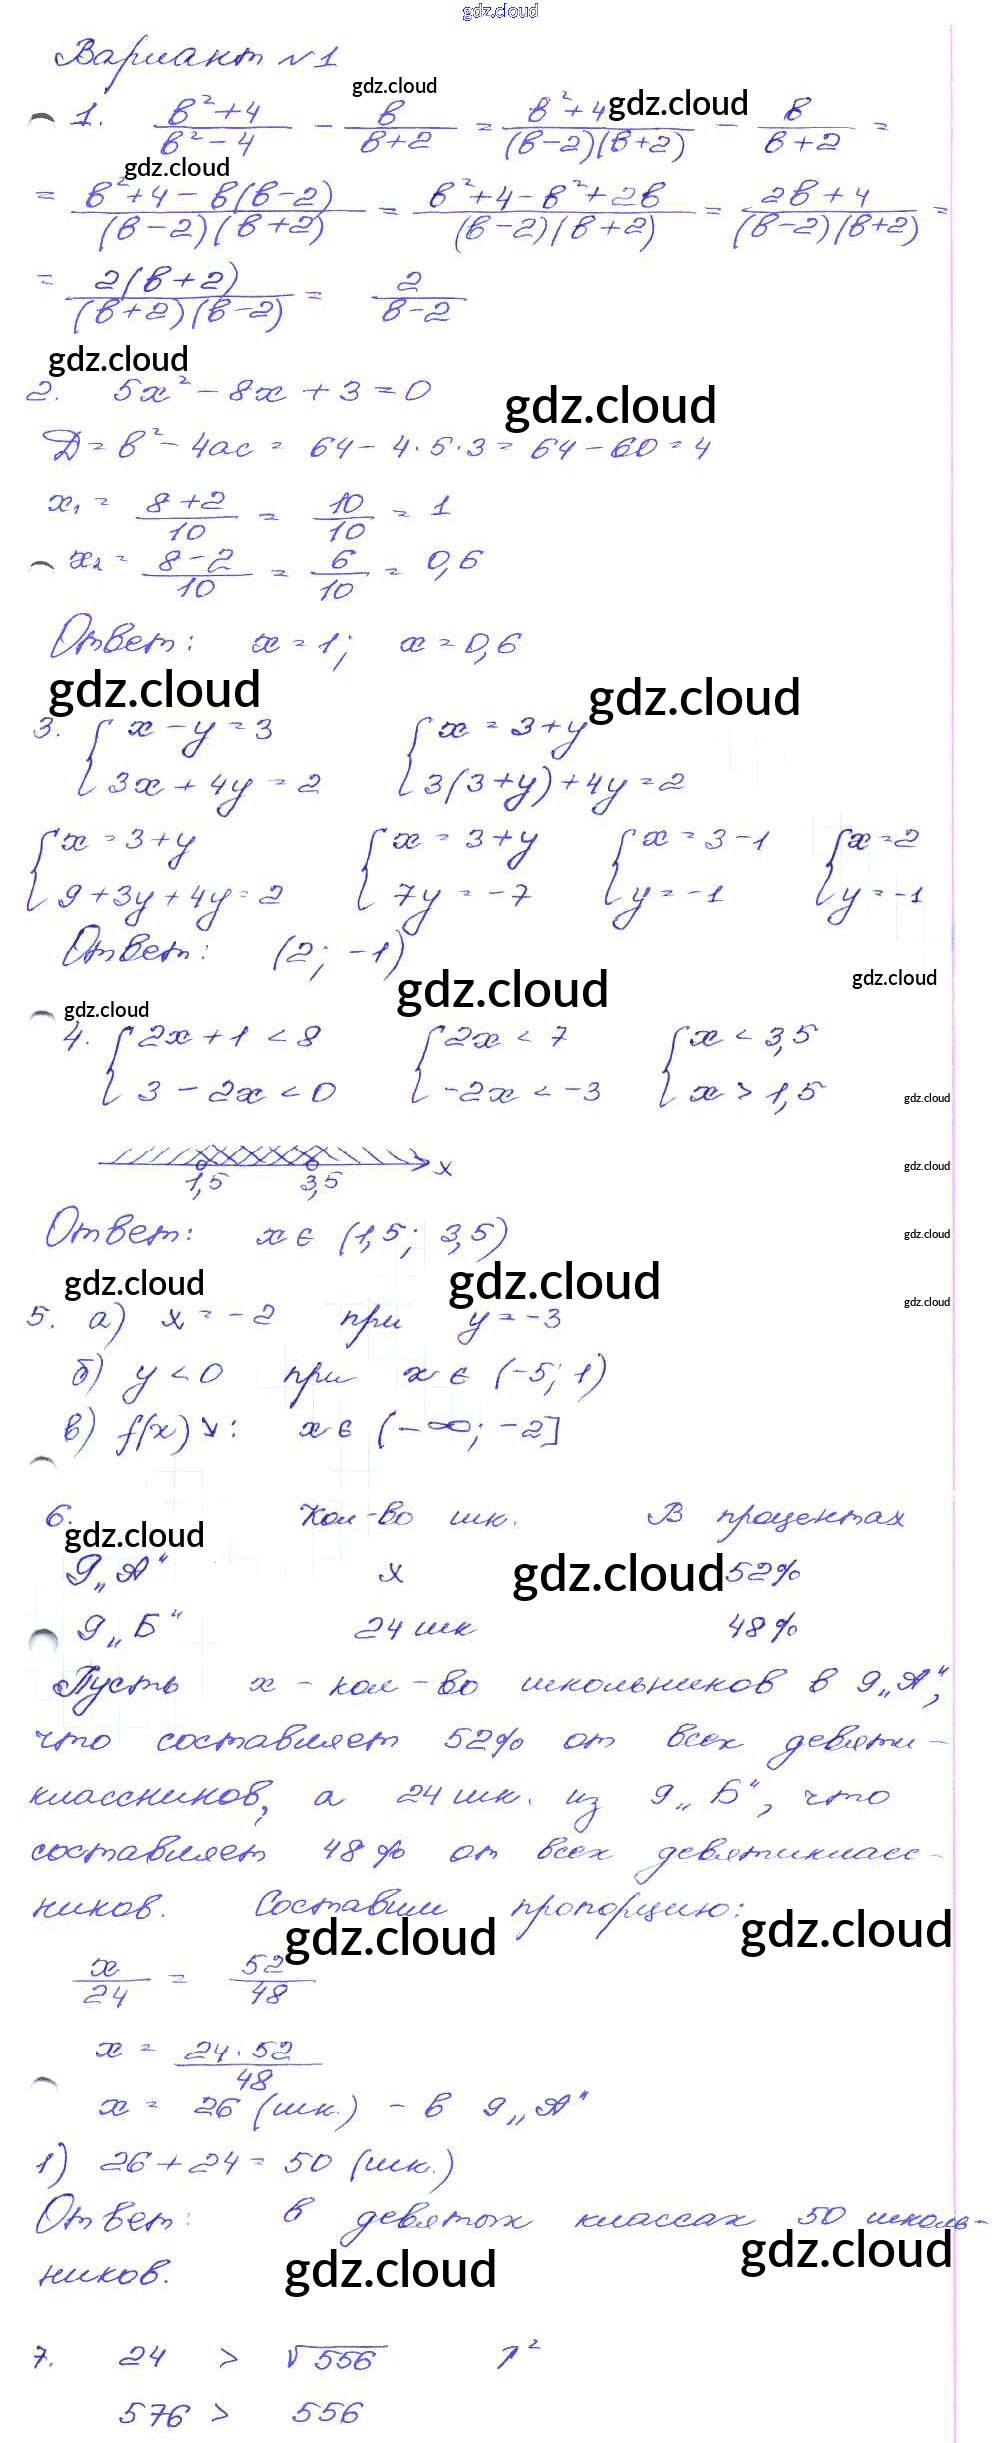 gdz.cloud
Вариант №1
gdz.cloud
1. (в²+4)/(в²-4) - в/(в+2) = (в²+4)/((в-2)(в+2)) - в/(в+2) =
gdz.cloud
gdz.cloud
= (в²+4-в(в-2))/((в-2)(в+2)) = (в²+4-в²+2в)/((в-2)(в+2)) = (2в+4)/((в-2)(в+2)) =
= 2(в+2)/((в+2)(в-2)) = 2/(в-2)
gdz.cloud
2. 5x² - 8x + 3 = 0
gdz.cloud
Д = в² - 4ac = 64 - 4·5·3 = 64 - 60 = 4
x₁ = (8+2)/10 = 10/10 = 1
x₂ = (8-2)/10 = 6/10 = 0,6
Ответ: x = 1; x = 0,6
gdz.cloud gdz.cloud
3. { x - y = 3 { x = 3 + y
3x + 4y = 2 3(3+y) + 4y = 2
{ x = 3 + y { x = 3 + y { x = 3 - 1 { x = 2
9 + 3y + 4y = 2 7y = -7 y = -1 y = -1
Ответ: (2; -1)
gdz.cloud gdz.cloud
gdz.cloud
4. { 2x + 1 < 8 { 2x < 7 { x < 3,5
3 - 2x < 0 -2x < -3 x > 1,5
gdz.cloud
x
gdz.cloud
1,5 3,5
Ответ: x ∈ (1,5; 3,5)
gdz.cloud
gdz.cloud gdz.cloud
gdz.cloud
5. а) x = -2 при y = -3
б) y < 0 при x ∈ (-5; 1)
в) f(x)↘: x ∈ (-∞; -2]
6. Кол-во шк. В процентах
gdz.cloud
9„А“ x 52%
gdz.cloud
9„Б“ 24 шк 48%
Пусть x - кол-во школьников в 9„А“,
что составляет 52% от всех девяти-
классников, а 24 шк. из 9„Б“, что
составляет 48% от всех девятикласс-
ников. Составим пропорцию:
gdz.cloud gdz.cloud
x/24 = 52/48
x = (24·52)/48
x = 26 (шк.) - в 9„А“
1) 26 + 24 = 50 (шк.)
Ответ: в девятых классах 50 школь-
ников.
gdz.cloud gdz.cloud
7. 24 > √556 ↑²
576 > 556